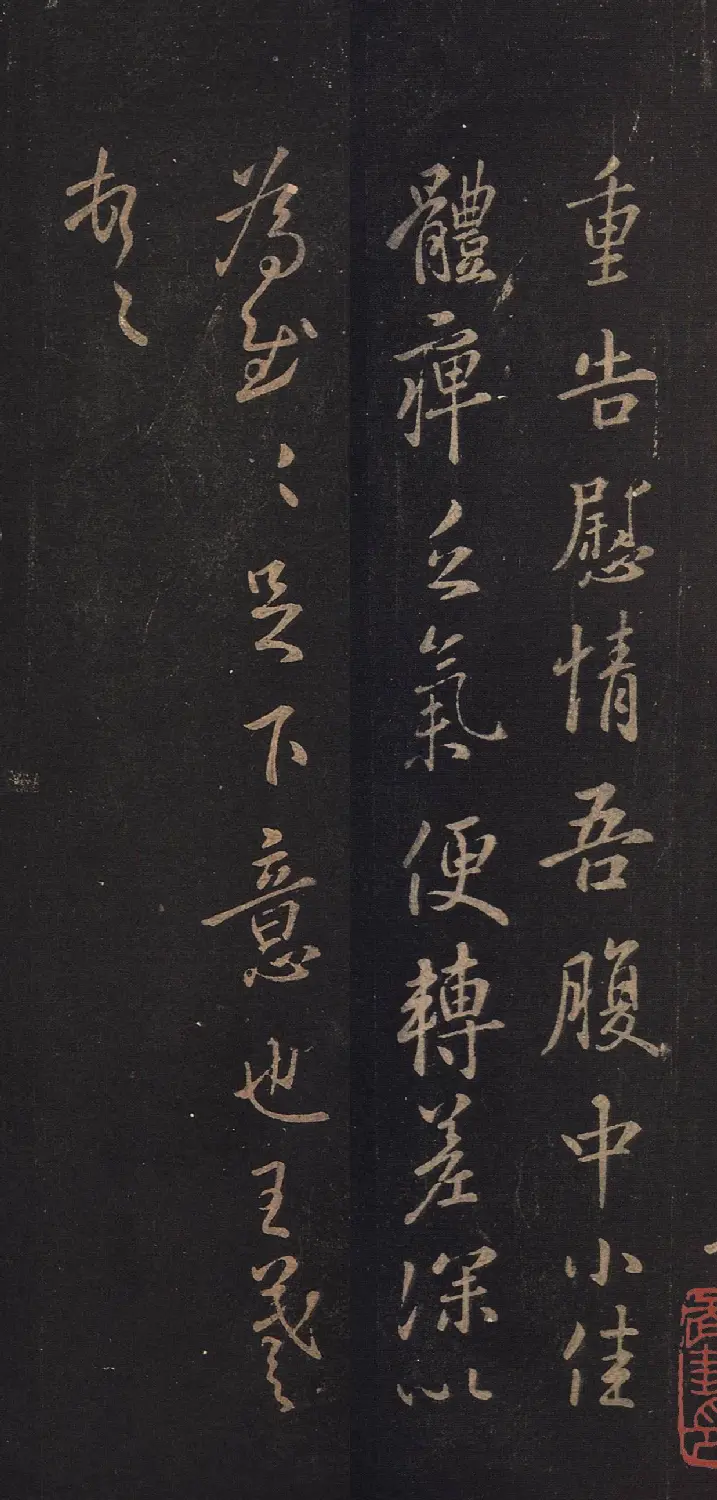 重告慰情吾腹中小佳
體痺乏氣便轉差深以
為感〻足下意也王羲之
頓首